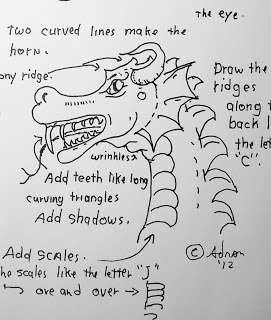 The eye.
Two curved lines make the
horn.
ony ridge.
Draw the
ridges
along t
back l
the let
"C".
wrinkles
Add teeth like long
curving triangles
Add shadows.
© Adron
'12
Add scales.
he scales like the letter "J"
over and over